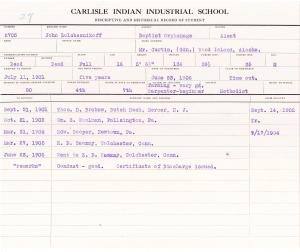 27
CARLISLE INDIAN INDUSTRIAL SCHOOL
DESCRIPTIVE AND HISTORICAL RECORD OF STUDENT
4705 John Kolchesnikoff Baptist Orphanage Aleut
Mr. Curtis, (Gdn.) Wood Island, Alaska.
Dead Dead Full 16 5' 6½" 134 M
July 11, 1901 five years June 23, 1906 Time out.
20 4th 7th Farming - very gd. Carpenter-beginner Methodist
Sept. 21, 1901 Thos. D. Dutch Neck, Mercer, N. J. Sept. 14, 1902
Oct. 21, 1902 Wm. S. Fallsington, Pa. Tr.
Mar. 31, 1903 Edw. Cooper, Newtown, Pa. 9/17/1904
Mar. 27, 1905 E. B. Colchester, Conn.
June 23, 1906 Went to E. B. Colchester, Conn.
"remarks" Conduct - good. Certificate of Discharge issued.